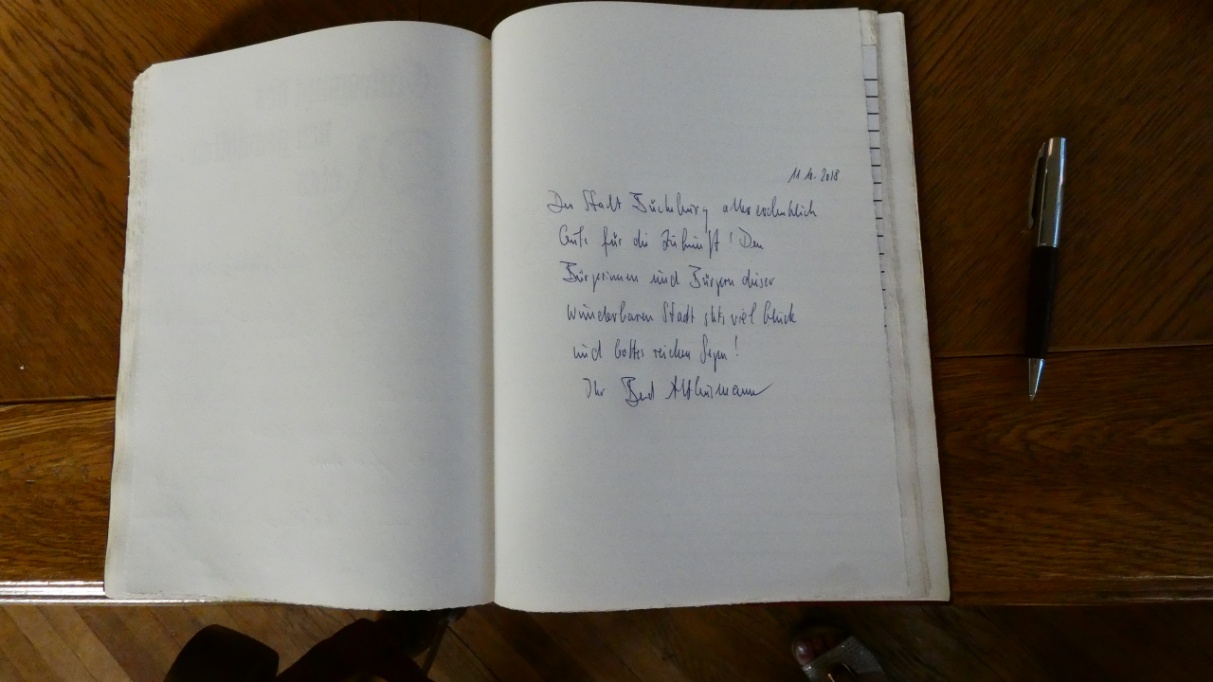 11.10.2018
Der Stadt Bückeburg alles erdenklich
Gute für die Zukunft! Den
Bürgerinnen und Bürgern dieser
wunderbaren Stadt stets viel Glück
und Gottes reichen Segen!
Ihr Bernd Althusmann